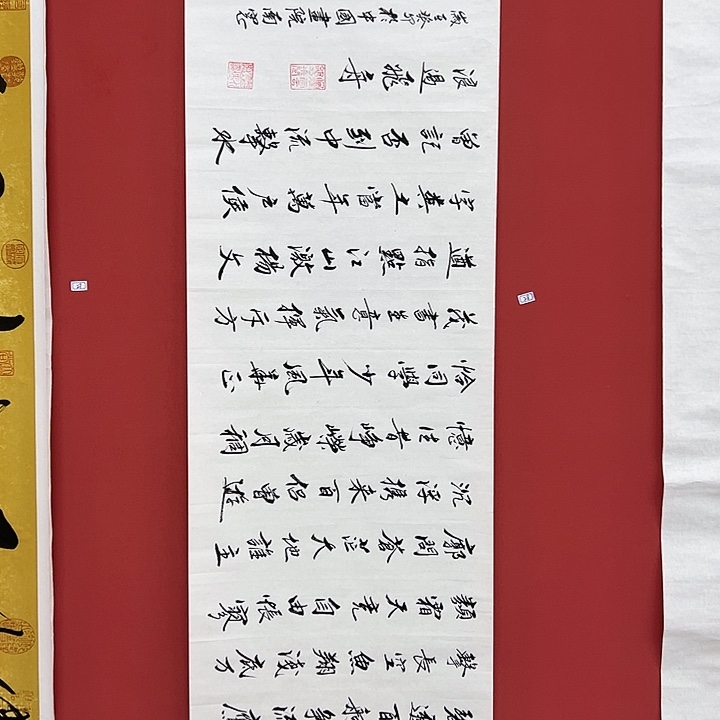 透百舸爭流鷹
擊長空魚翔淺底万
類霜天竞自由悵寥
廓問蒼茫大地誰主
沉浮携来百侣曾遊
憶往昔崢嶸歲月稠
恰同學少年風華正
茂書生意氣揮斥方
遒指點江山激揚文
字糞土當年萬户侯
曾記否到中流擊水
浪遏飛舟
歲癸卯於中國畫院南窗